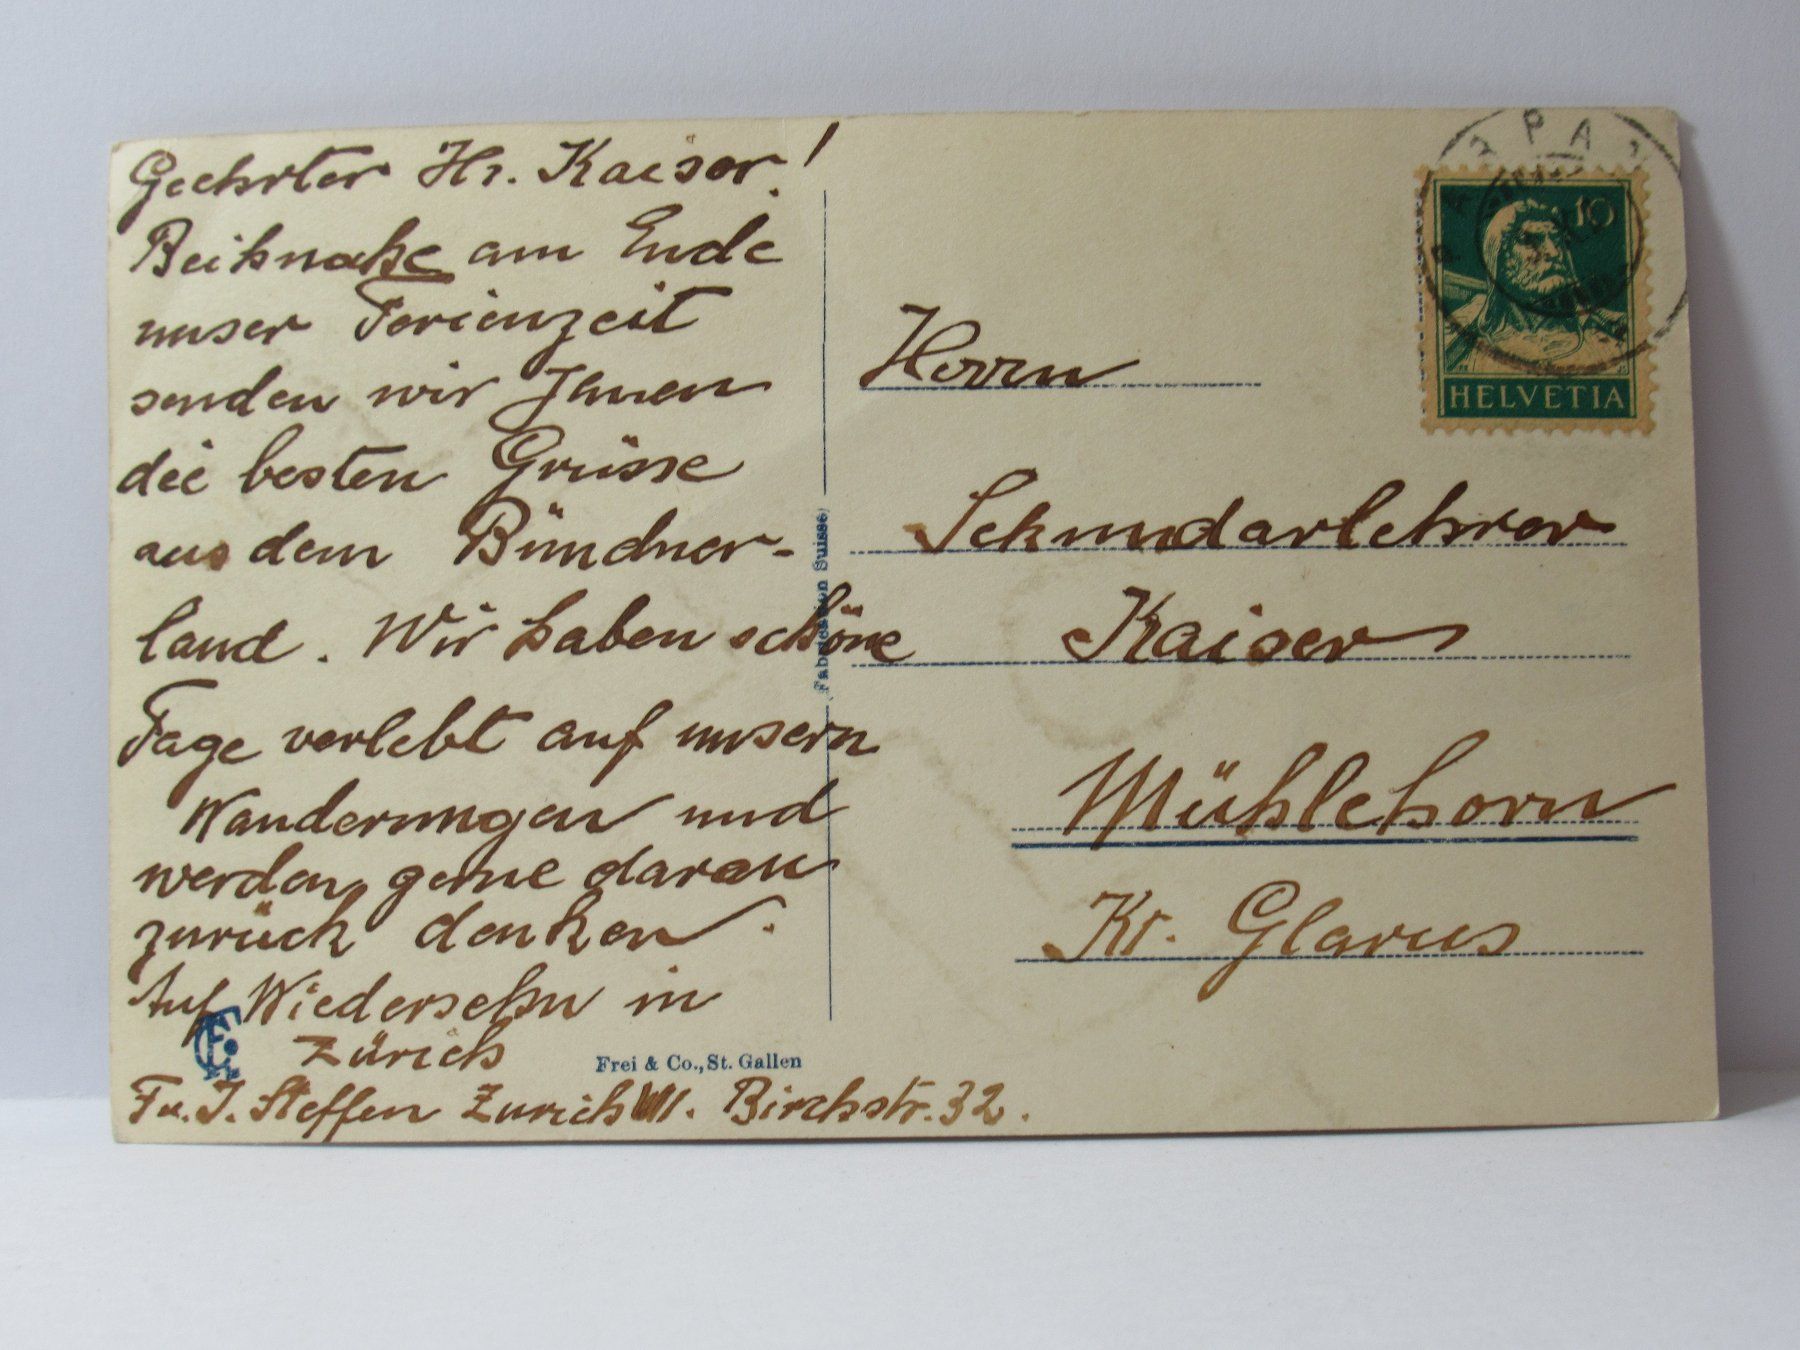 Geehrter Hr. Kaiser!
Beihnahe am Ende
unser Ferienzeit
senden wir Ihnen
die besten Grüsse
aus dem Bündner-
land. Wir haben schöne
Tage verlebt auf unsern
Wanderungen und
werden gerne daran
zurück denken.
Auf Wiedersehn in
Zürich
J. Steffen Zürich Birchstr. 32.
Frei & Co., St. Gallen
Suisse
10
HELVETIA
Herrn
Sekundarlehrer
Kaiser
Mühlehorn
Kt. Glarus